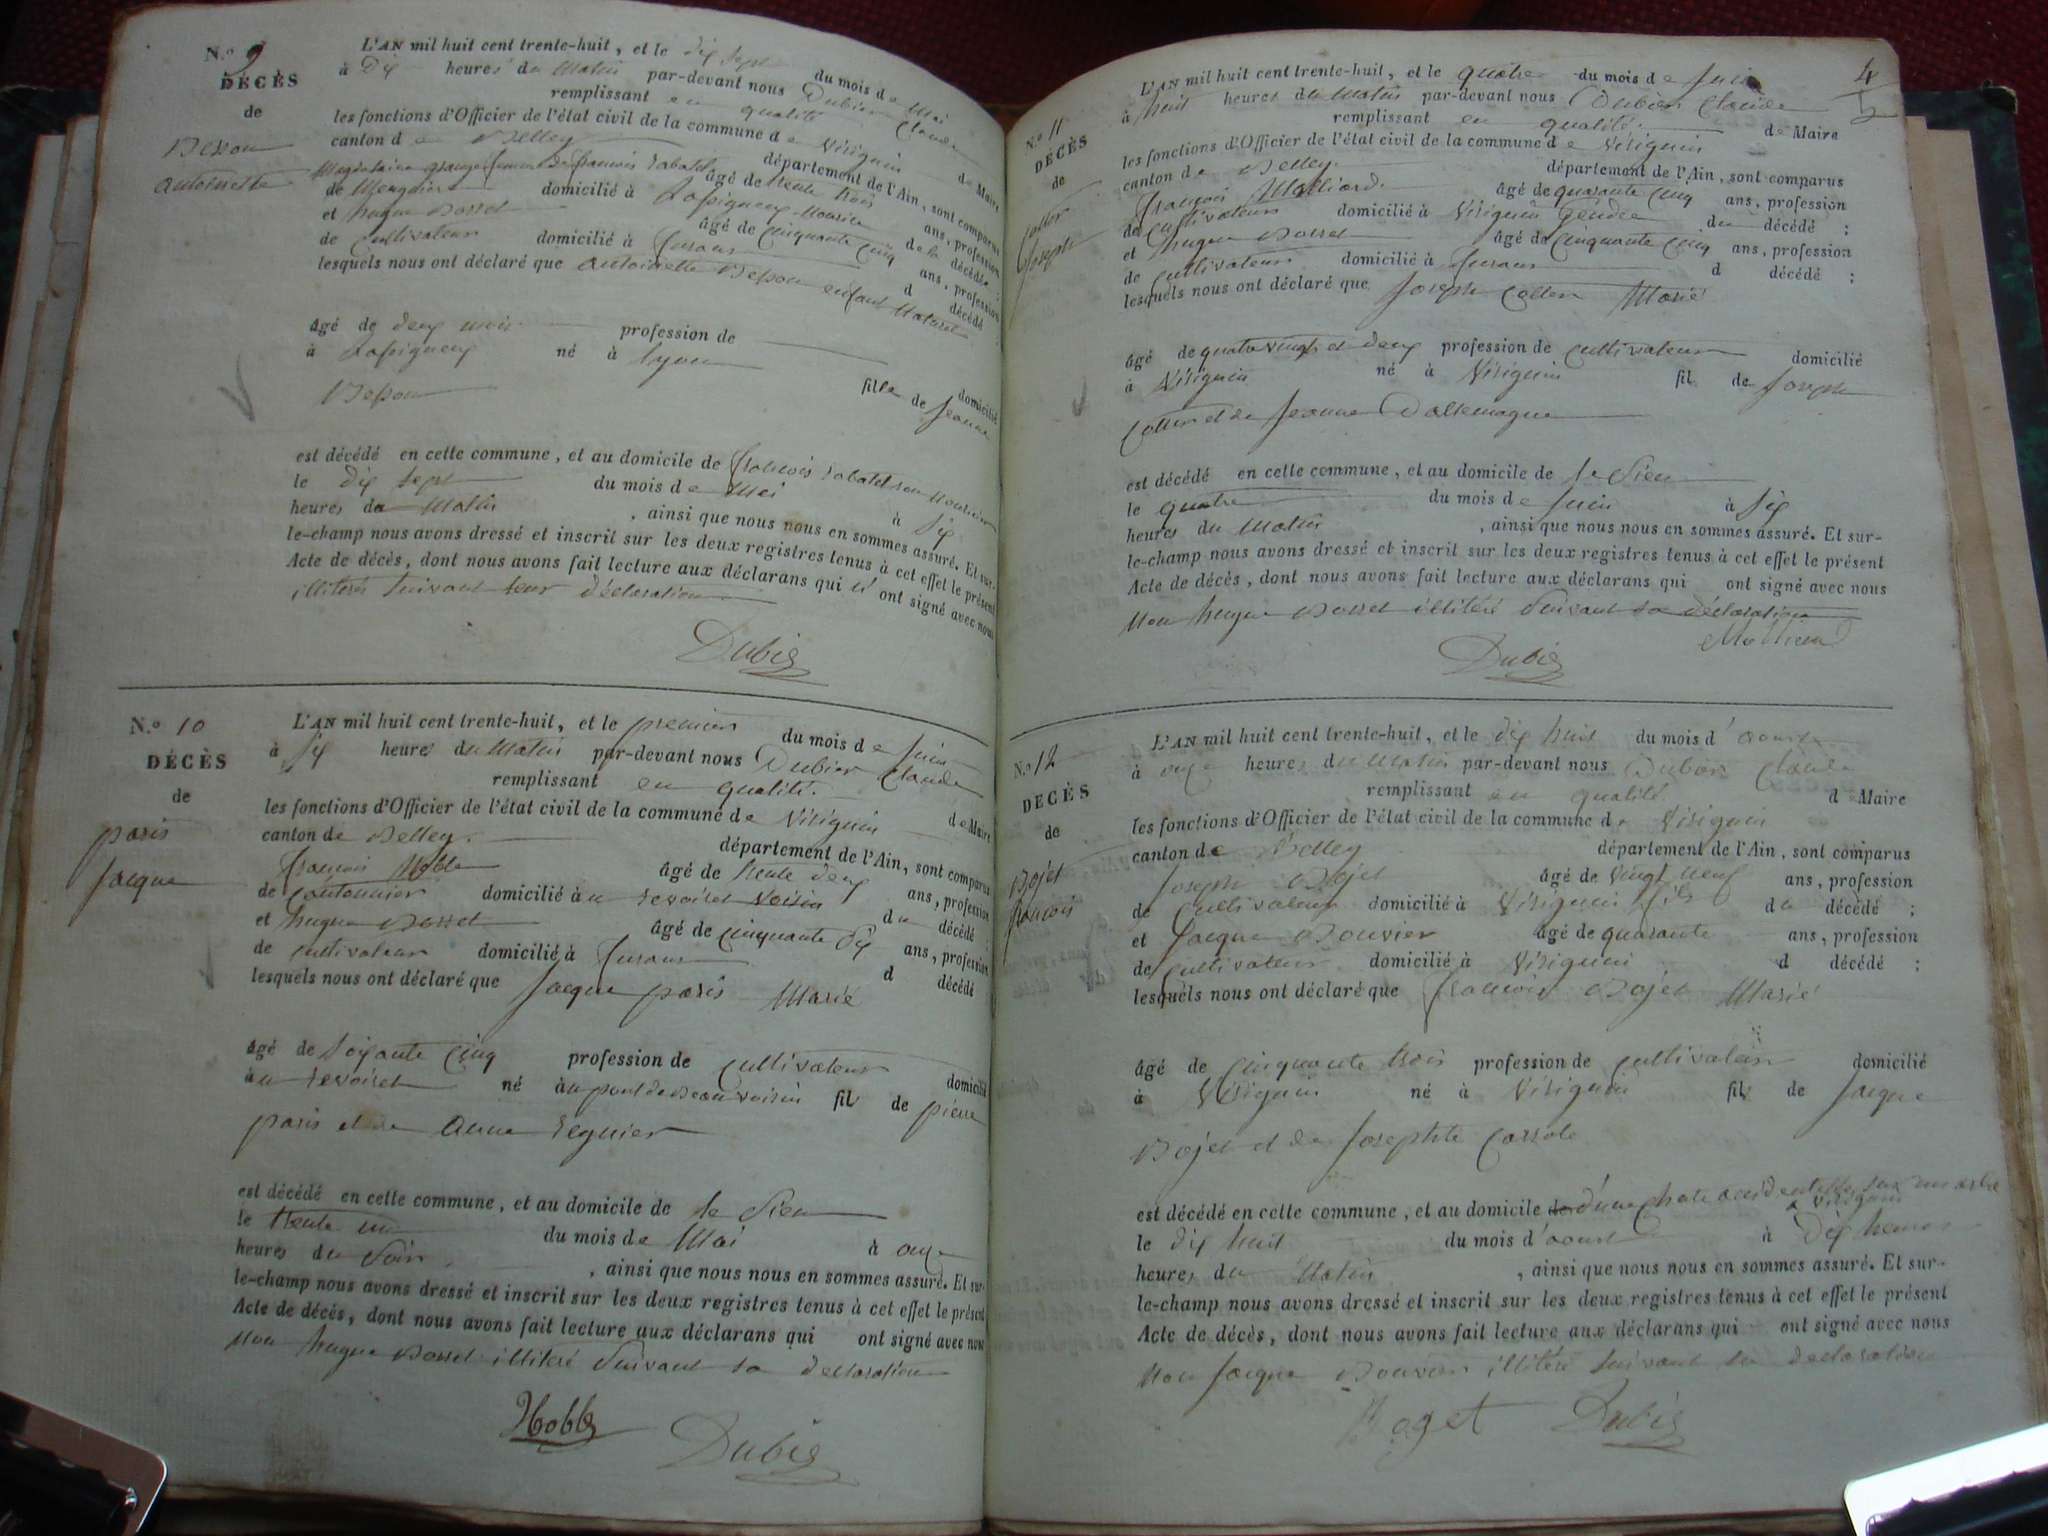 N.o 9
DÉCÈS
de
Besson
antoinette
L'AN mil huit cent trente-huit, et le dix sept du mois de Mai
à Dix heures du Matin par-devant nous Dubier Claude
remplissant en qualité de Maire
les fonctions d'Officier de l'état civil de la commune de Virignin
canton de Belley département de l'Ain, sont comparus
femme de françois Sabatel âgé de trente trois ans, profession
de domicilié à de la décédée ;
et hugue Bosset âgé de cinquante cinq ans, profession
de cultivateur domicilié à d décédé
lesquels nous ont déclaré que antoinette Besson enfant Naturel
âgé de deux mois profession de domicilié
à né à lyon fille de Jeanne
Besson
est décédé en cette commune, et au domicile de françois Sabatel
le dix sept du mois de Mai à six
heures du Matin, ainsi que nous nous en sommes assuré. Et sur-
le-champ nous avons dressé et inscrit sur les deux registres tenus à cet effet le présent
Acte de décès, dont nous avons fait lecture aux déclarans qui n' ont signé avec nous
illiterés suivant leur déclaration
Dubier
N.o 10
DÉCÈS
de
paris
Jacque
L'AN mil huit cent trente-huit, et le premier du mois de Juin
à six heures du Matin par-devant nous Dubier Claude
remplissant en qualité. de Maire
les fonctions d'Officier de l'état civil de la commune de Virignin
canton de Belley. département de l'Ain, sont comparus
françois Noble âgé de trente deux ans, profession
de cantonnier domicilié à voisin du décédé ;
et hugue Bosset âgé de cinquante six ans, profession
de cultivateur domicilié à d décédé
lesquels nous ont déclaré que Jacque paris Marié
âgé de soixante cinq profession de cultivateur domicilié
né à pont de Beauvoisin fils de pierre
paris et de anne
est décédé en cette commune, et au domicile de le sien
le trente un du mois de Mai à onze
heures du soir, ainsi que nous nous en sommes assuré. Et sur-
le-champ nous avons dressé et inscrit sur les deux registres tenus à cet effet le présent
Acte de décès, dont nous avons fait lecture aux déclarans qui ont signé avec nous
Non hugue Bosset illiteré suivant sa declaration
Noble Dubier
4
N.o 11
DÉCÈS
de
Cottin
Joseph
L'AN mil huit cent trente-huit, et le quatre du mois de Juin
à huit heures du Matin par-devant nous Dubier Claude
remplissant en qualité. de Maire
les fonctions d'Officier de l'état civil de la commune de Virignin
canton de Belley. département de l'Ain, sont comparus
françois âgé de quarante cinq ans, profession
de cultivateur domicilié à Virignin Gendre du décédé ;
et hugue Bosset âgé de cinquante cinq ans, profession
de cultivateur domicilié à d décédé ;
lesquels nous ont déclaré que Joseph Cottin Marié
âgé de quatre vingt et deux profession de cultivateur domicilié
à Virignin né à Virignin fils de Joseph
Cottin et de Jeanne Dallemagne
est décédé en cette commune, et au domicile de le sien
le quatre du mois de Juin à six
heures du Matin, ainsi que nous nous en sommes assuré. Et sur-
le-champ nous avons dressé et inscrit sur les deux registres tenus à cet effet le présent
Acte de décès, dont nous avons fait lecture aux déclarans qui ont signé avec nous
Non hugue Bosset illiteré suivant sa déclaration
Dubier
N.o 12
DÉCÈS
de
Bojet
françois
L'AN mil huit cent trente-huit, et le dix huit du mois d'aoust
à onze heures du Matin par-devant nous Dubier Claude
remplissant en qualité. de Maire
les fonctions d'Officier de l'état civil de la commune de Virignin
canton de Belley département de l'Ain, sont comparus
Joseph Bojet âgé de vingt neuf ans, profession
de cultivateur domicilié à Virignin fils du décédé ;
et Jacque Bouvier âgé de quarante ans, profession
de cultivateur domicilié à Virignin d décédé ;
lesquels nous ont déclaré que françois Bojet Marié
âgé de cinquante trois profession de cultivateur domicilié
à Virignin né à Virignin fils de Jacque
Bojet et de Josephte
est décédé en cette commune, et au domicile d'une chute accidentelle sur un arbre
à Virignin
le dix huit du mois d'aoust à dix heures
heures du Matin, ainsi que nous nous en sommes assuré. Et sur-
le-champ nous avons dressé et inscrit sur les deux registres tenus à cet effet le présent
Acte de décès, dont nous avons fait lecture aux déclarans qui ont signé avec nous
Non Jacque Bouvier illitéré suivant sa declaration
Boget Dubier